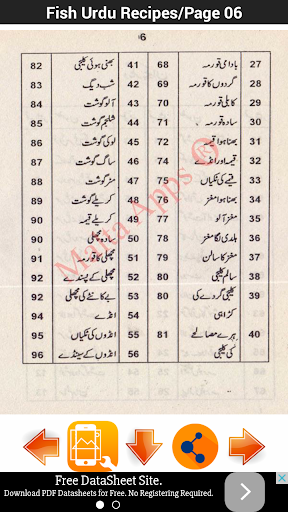 Fish Urdu Recipes/Page 06
6
27 بادامی قورمہ 68
28 گردوں کا قورمہ 69
29 کابلی قورمہ 70
30 سادہ قورمہ 72
31 بھنا ہوا قیمہ 72
32 قیمہ اور انڈے 74
33 قیمے کی ٹکیاں 75
34 بھنا ہوا مغز 76
35 مغز آلو 77
36 ہلدی لگا مغز 78
37 مغز کا سالن 79
38 سالم کلیجی 80
39 کلیجی گردے کی 80
کڑاہی
40 ہرے مصالحے 81
کی کلیجی
41 بھنی ہوئی کلیجی 82
42 شب دیگ 83
43 آلو گوشت 84
44 شلجم گوشت 85
45 لوکی گوشت 86
46 ساگ گوشت 87
47 مٹر گوشت 88
48 کریلے گوشت 88
49 کریلے قیمہ 90
50 سادہ مچھلی 90
51 مچھلی کا قورمہ 91
52 مچھلی کے پسندے 92
53 بے کانٹے کی مچھلی 92
54 انڈے
55 انڈوں کی ٹکیاں 95
56 انڈوں کے سینڈے 96
Malta Apps ®
Free DataSheet Site.
Download PDF Datasheets for Free. No Registering Required.